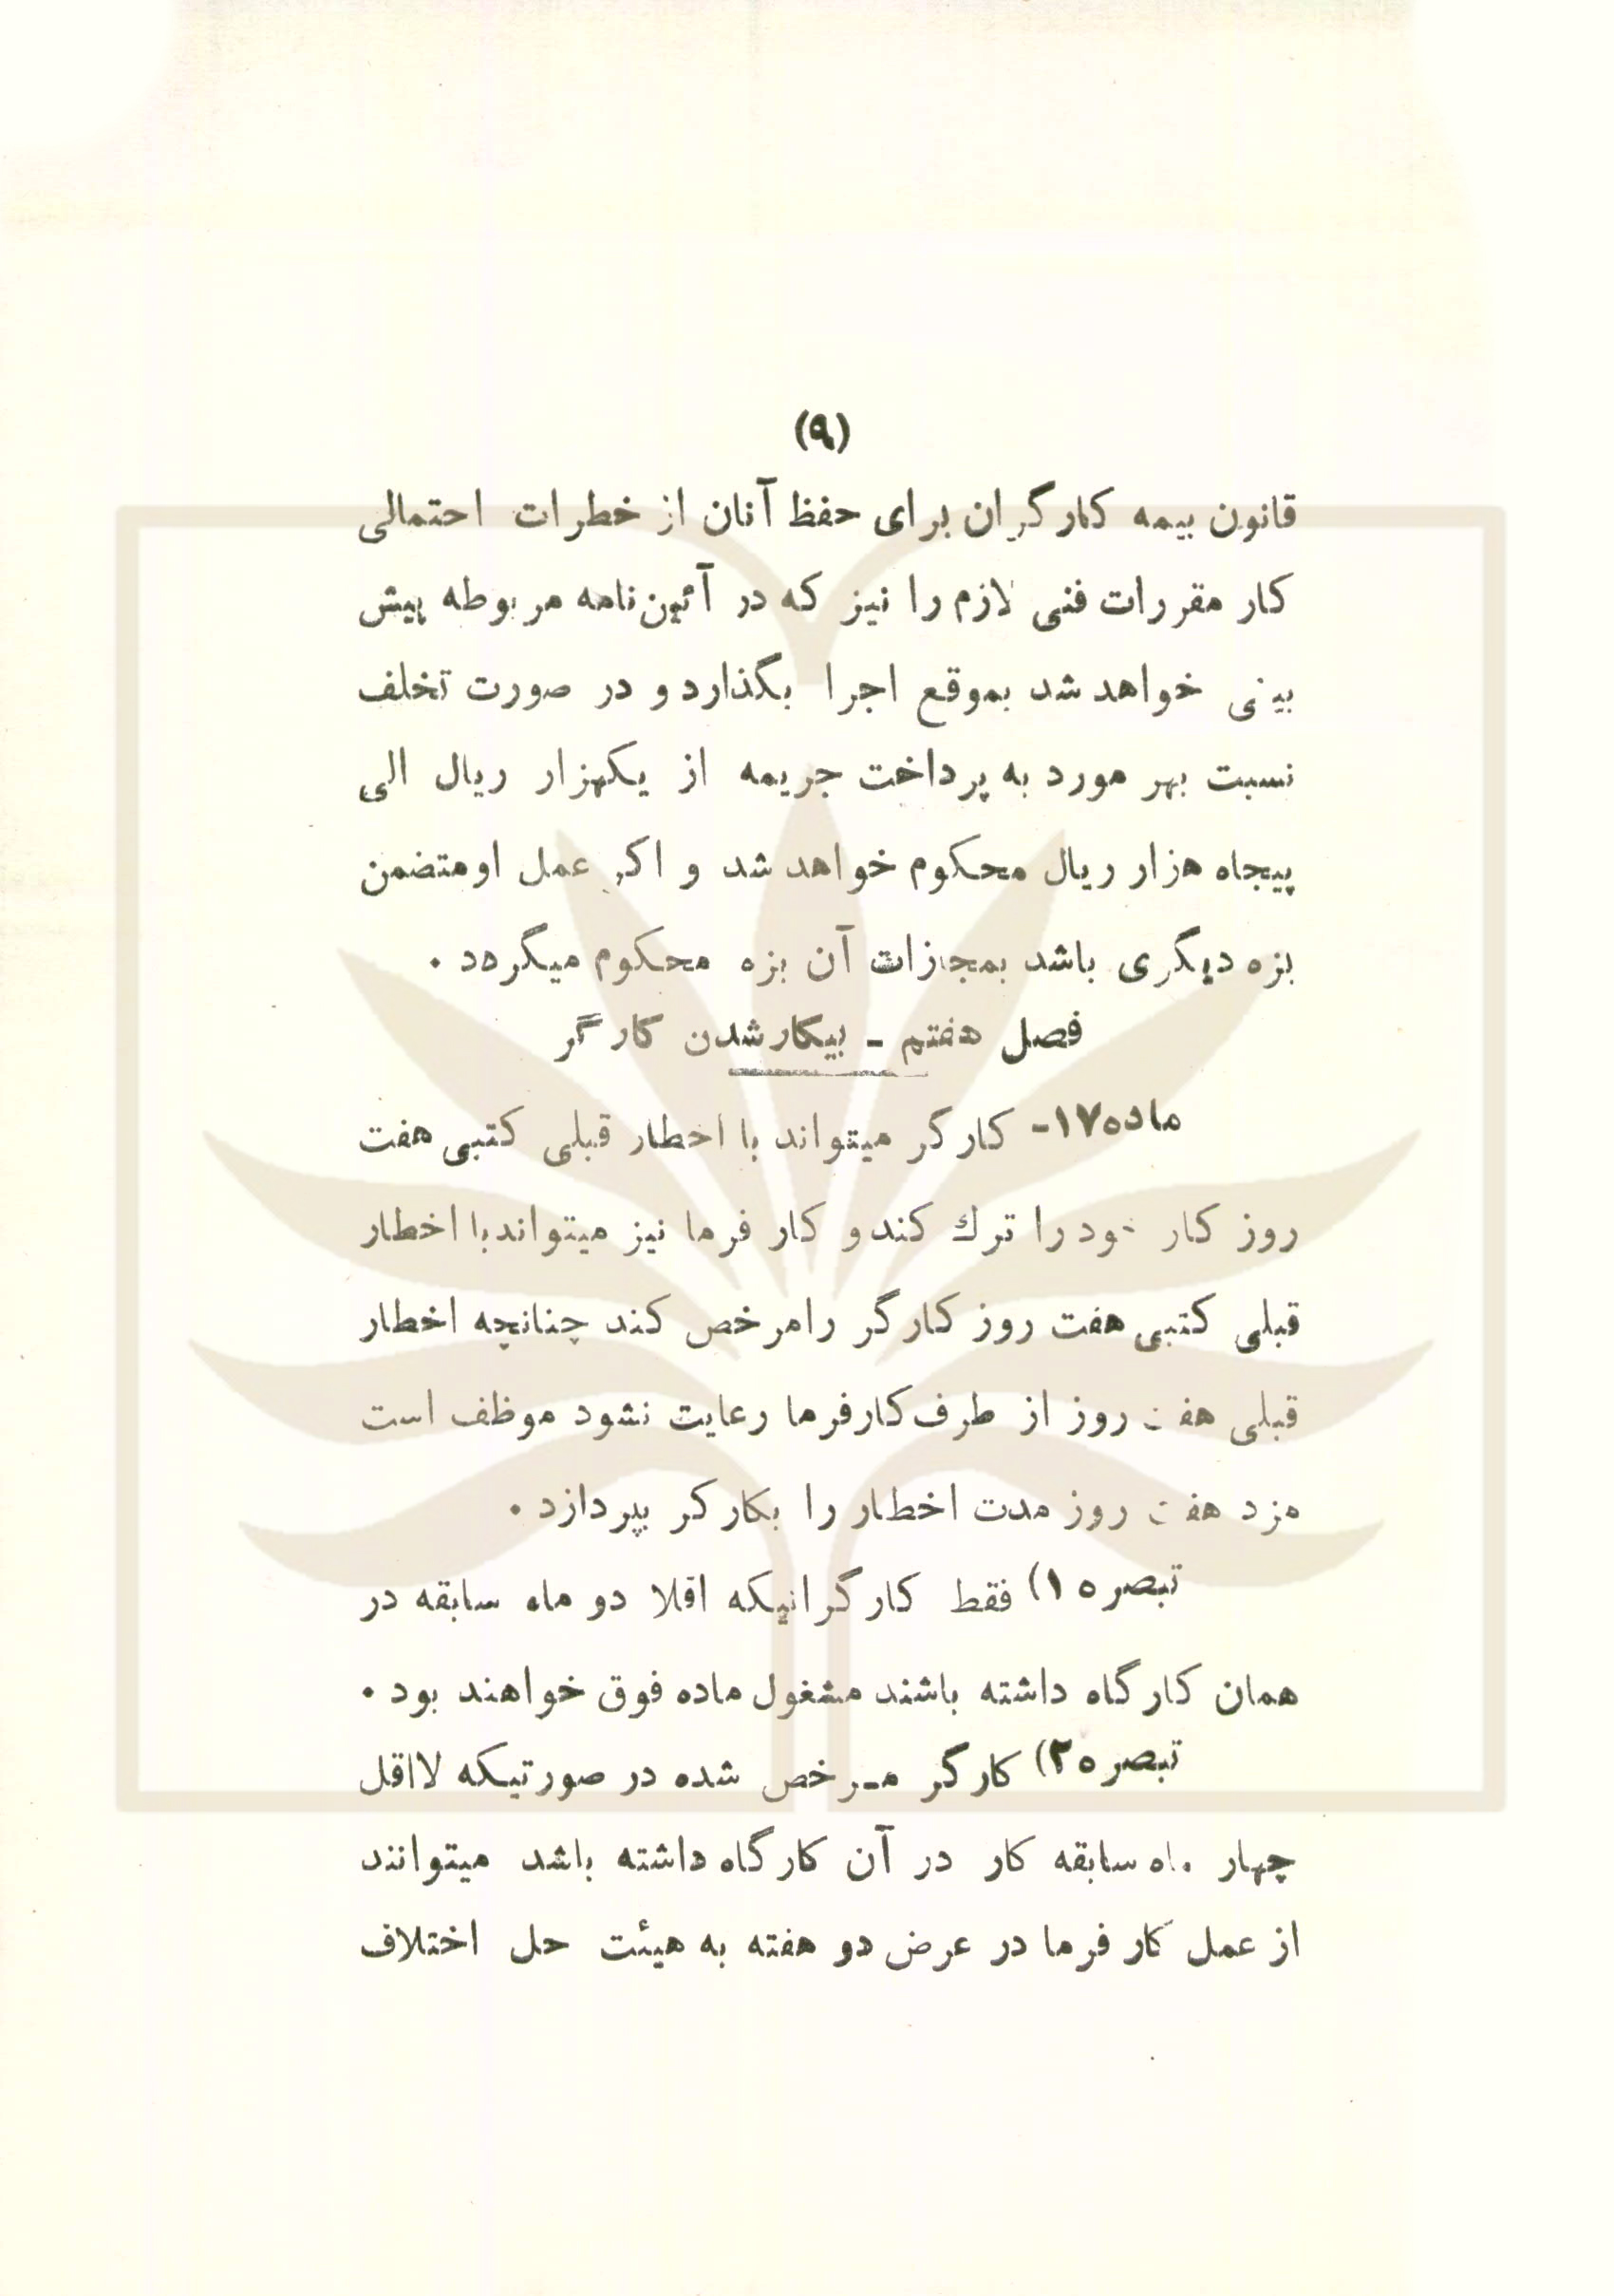 (۹)
قانون بیمه کارگران برای حفظ آنان از خطرات احتمالی
کار مقررات فنی لازم را نیز که در آئین‌نامه مربوطه پیش
بینی خواهد شد بموقع اجرا بگذارد و در صورت تخلف
نسبت بهر مورد به پرداخت جریمه از یکهزار ریال الی
پیجاه هزار ریال محکوم خواهد شد و اکر عمل او متضمن
بزه دیگری باشد بمجازات آن بزه محکوم میگردد .
فصل هفتم - بیکار شدن کارگر
ماده ۱۷- کارکر میتواند با اخطار قبلی کتبی هفت
روز کار خود را ترك کند و کار فرما نیز میتواند با اخطار
قبلی کتبی هفت روز کارگر را مرخص کند چنانچه اخطار
قبلی هفت روز از طرف کارفرما رعایت نشود موظف است
مزد هفت روز مدت اخطار را بکارکر بپردازد .
تبصره ۱) فقط کارگرانیکه اقلا دو ماه سابقه در
همان کارگاه داشته باشند مشغول ماده فوق خواهند بود .
تبصره ۲) کارگر مرخص شده در صورتیکه لااقل
چهار ماه سابقه کار در آن کارگاه داشته باشد میتوانند
از عمل کار فرما در عرض دو هفته به هیئت حل اختلاف